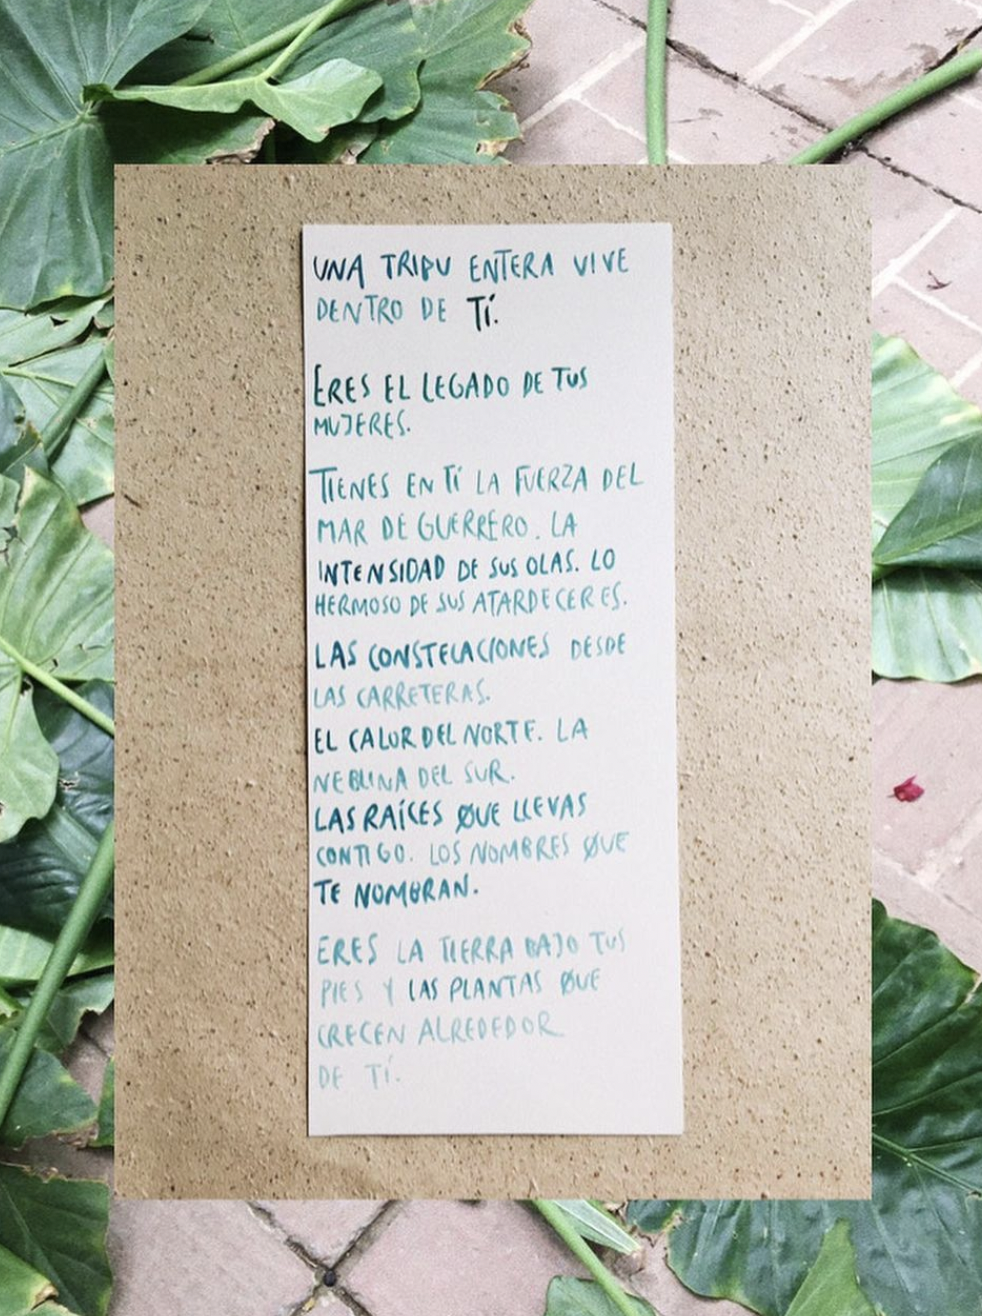 UNA TRIBU ENTERA VIVE
DENTRO DE TÍ.
ERES EL LEGADO DE TUS
MUJERES.
TIENES EN TÍ LA FUERZA DEL
MAR DE GUERRERO. LA
INTENSIDAD DE SUS OLAS. LO
HERMOSO DE SUS ATARDECERES.
LAS CONSTELACIONES DESDE
LAS CARRETERAS.
EL CALOR DEL NORTE. LA
NEBLINA DEL SUR.
LAS RAÍCES QUE LLEVAS
CONTIGO. LOS NOMBRES QUE
TE NOMBRAN.
ERES LA TIERRA BAJO TUS
PIES Y LAS PLANTAS QUE
CRECEN ALREDEDOR
DE TÍ.